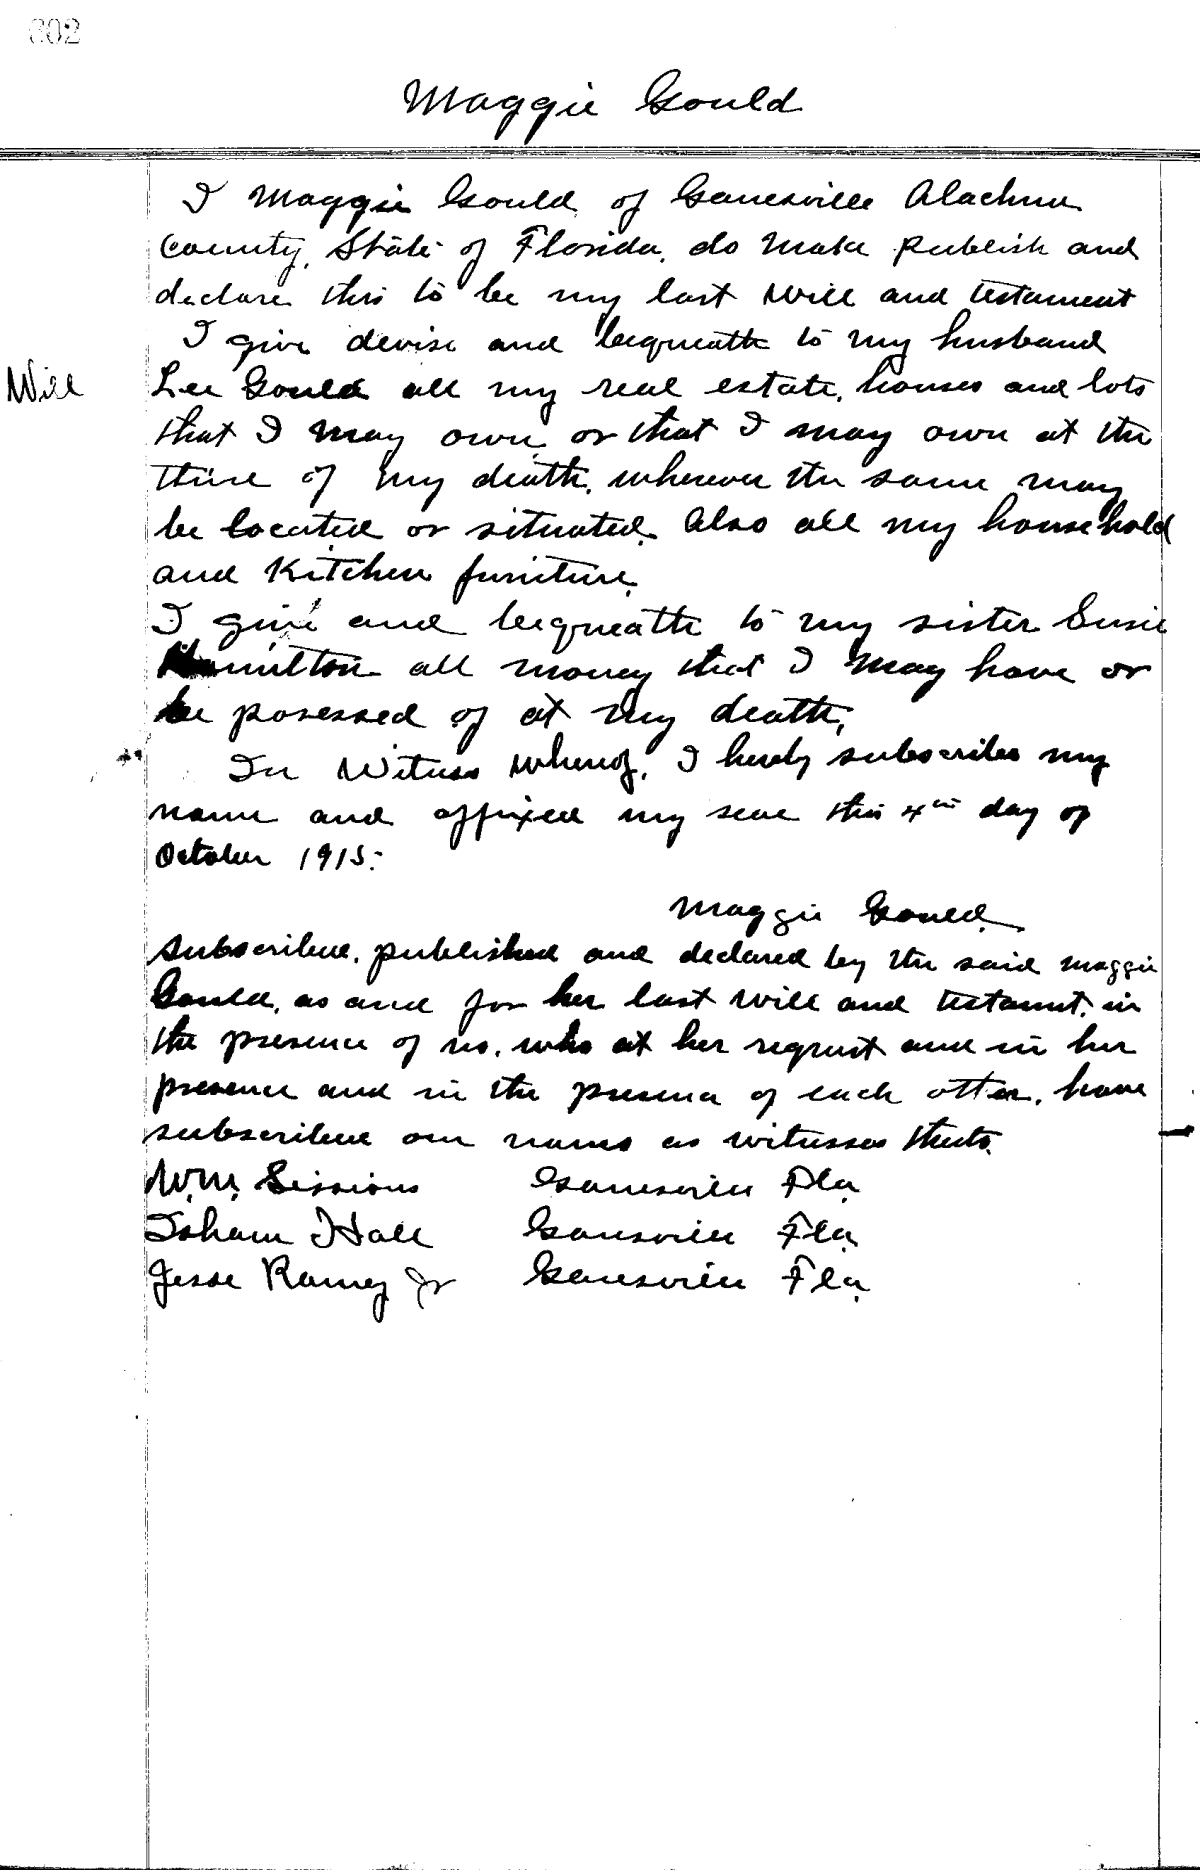 302
Maggie Gould
I Maggie Gould of Gainesville Alachua
County, State of Florida, do make publish and
declare this to be my last Will and testament
I give devise and bequeath to my husband
Will
Lee Gould all my real estate, houses and lots
that I may own or that I may own at the
time of my death, wherever the same may
be located or situated. Also all my household
and Kitchen furniture.
I give and bequeath to my sister Susie
Hamilton all money that I may have or
be posessed of at my death,
In Witness Whereof, I hereby subscribe my
name and affixed my seal this 4th day of
October 1915.
Maggie Gould
Subscribed, published and declared by the said Maggie
Gould, as and for her last Will and testament, in
the presence of us, who at her request and in her
presence and in the presence of each other, have
subscribed our names as witnesses thereto.
W.M. Sessions Gainesville Fla
Isham Hall Gainesville Fla
Jesse Ramey Jr Gainesville Fla